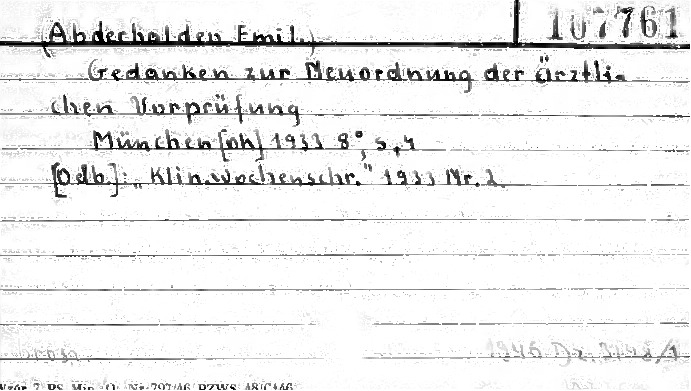 107761
(Abderhalden Emil.)
Gedanken zur Neuordnung der ärztli-
chen Vorprüfung
München [nh] 1933 8°, s, 4
[Odb.]: „Klin. Wochenschr." 1933 Nr. 2
1946 Dz. 3148/1
Wzór 7 PS. Min. O. Nr 797/46 PZWS.